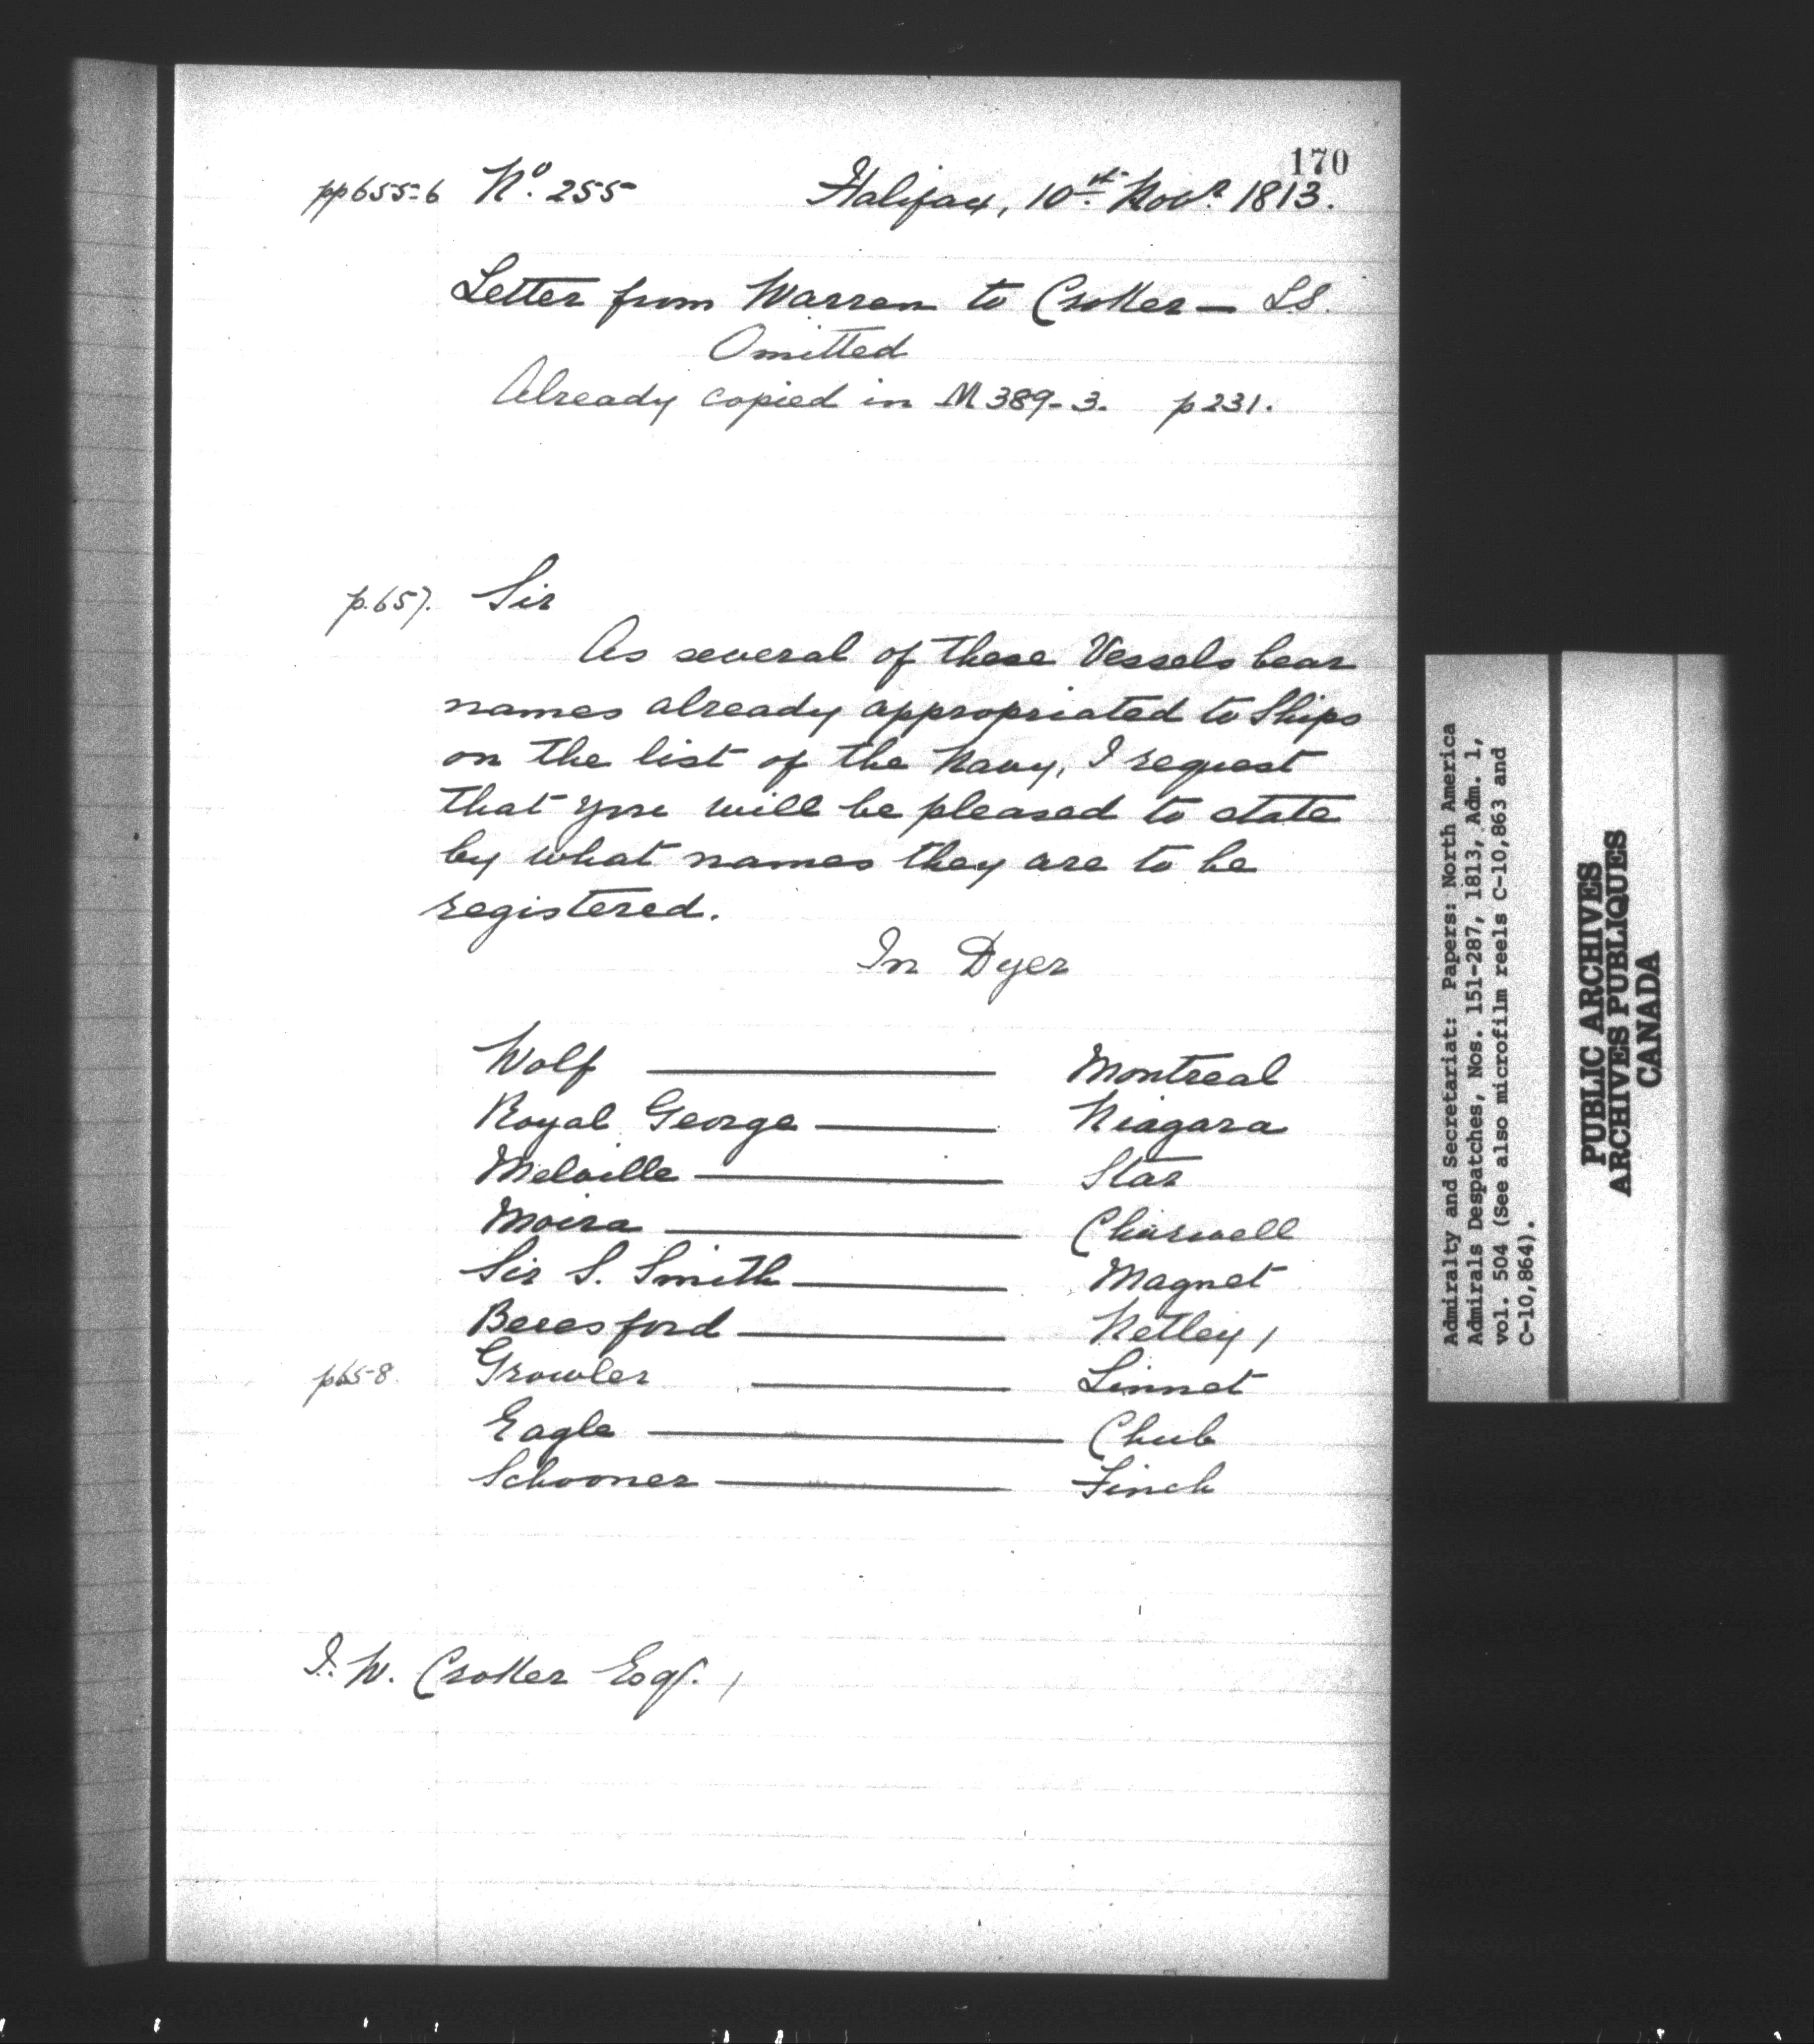 170
pp 655-6 No. 255 Halifax, 10th Novr. 1813.
Letter from Warren to Croker — LS.
Omitted
Already copied in M 389-3. p 231.
p. 657. Sir
As several of these Vessels bear
names already appropriated to Ships
on the list of the Navy, I request
that you will be pleased to state
by what names they are to be
registered.
In Dyer
Wolf — Montreal
Royal George — Niagara
Melville — Star
Moira — Charwell
Sir S. Smith — Magnet
Beresford — Netley /
p 658. Growler — Linnet
Eagle — Chub
Schooner — Finch
J. W. Croker Esqr. /
Admiralty and Secretariat: Papers: North America
Admirals Despatches, Nos. 151-287, 1813, Adm. 1,
vol. 504 (See also microfilm reels C-10,863 and
C-10,864).
PUBLIC ARCHIVES
ARCHIVES PUBLIQUES
CANADA